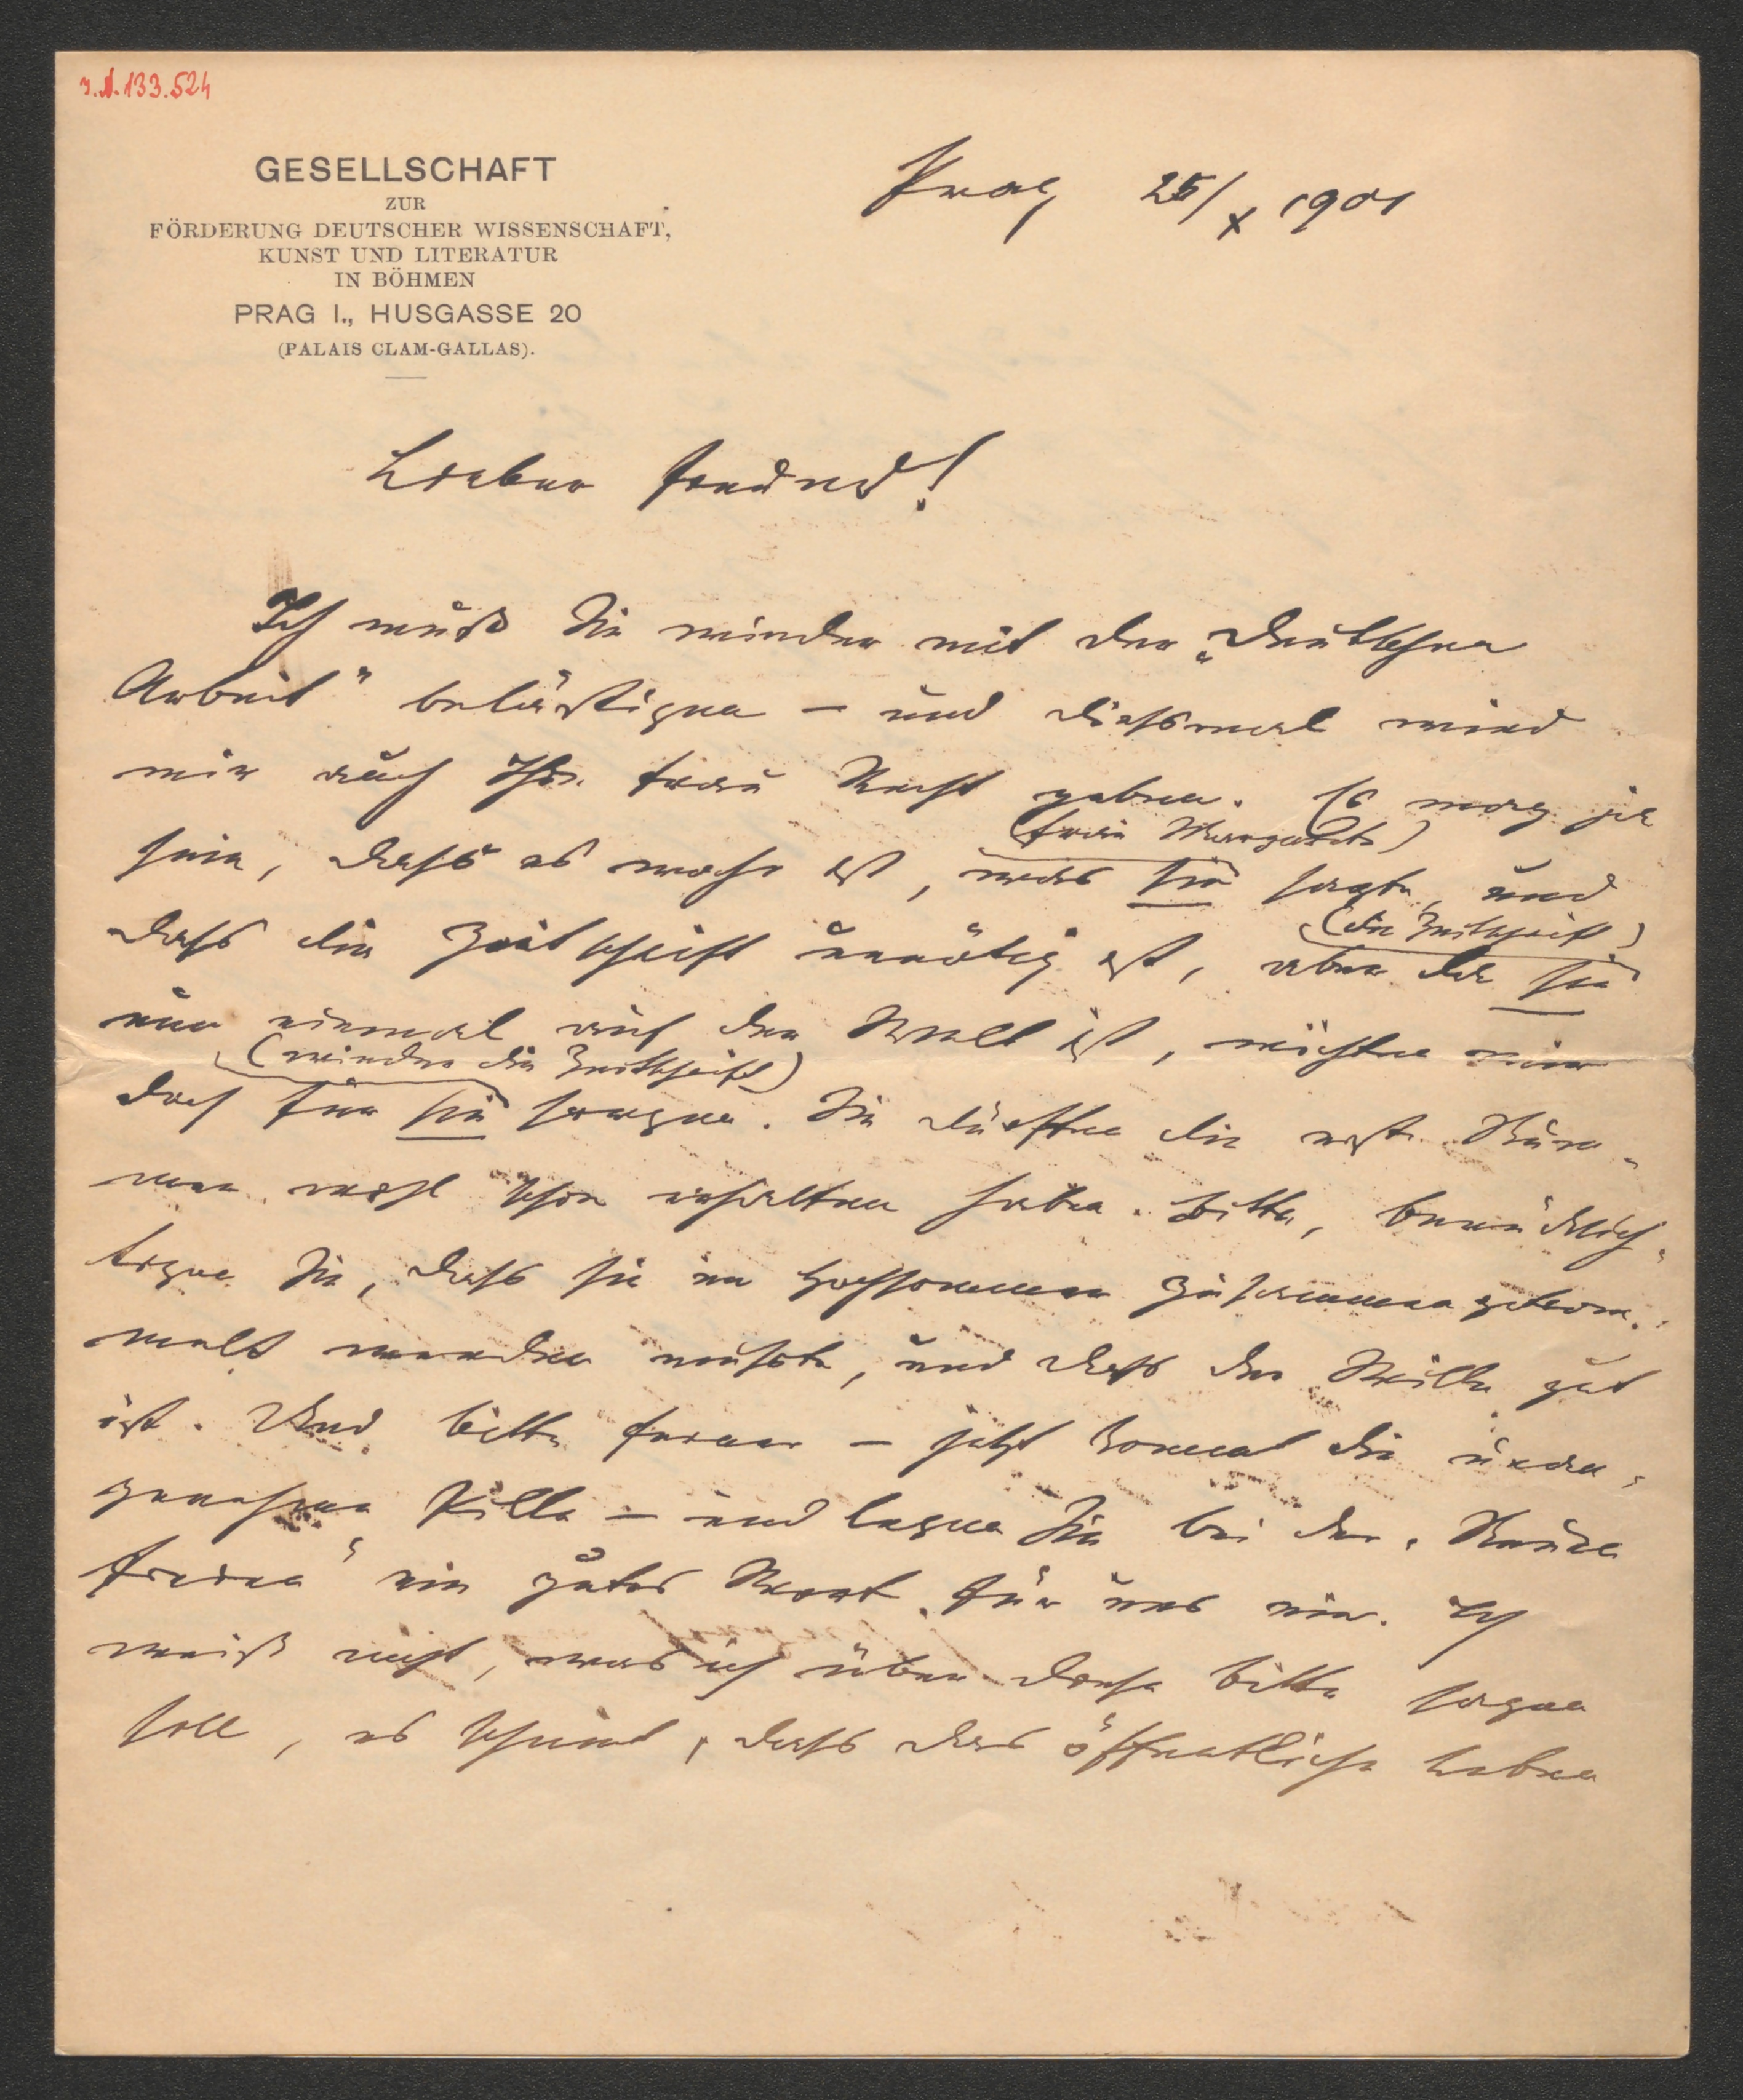 I.N. 133.524
GESELLSCHAFT
ZUR
FÖRDERUNG DEUTSCHER WISSENSCHAFT,
KUNST UND LITERATUR
IN BÖHMEN
PRAG I., HUSGASSE 20
(PALAIS CLAM-GALLAS).
Prag 25/X 1901
Lieber Freund!
Ich muß Sie wieder mit der „Deutschen
Arbeit" belästigen – und diessmal wird
mir auch Ihre Frau Recht geben. Es mag ja
(Frau Margarete)
sein, dass es wahr ist, was sie sagte, und
(die Zeitschrift)
dass die Zeitschrift unnötig ist, aber da sie
nun einmal auf der Welt ist, möchten wir
(wieder die Zeitschrift)
doch für sie sorgen. Sie dürften die erste Num-
mer wohl schon erhalten haben. Bitte, berücksich-
tigen Sie, dass sie im Hochsommer zusammengetrom-
melt werden musste, und dass der Wille gut
ist. Und bitte ferner – jetzt kommt die unan-
genehme Pille – und legen Sie bei der „Neuen
Freien" ein gutes Wort für uns ein. Ich
weiß nicht, was ich über diese Bitte sagen
soll, es scheint, dass das öffentliche Leben